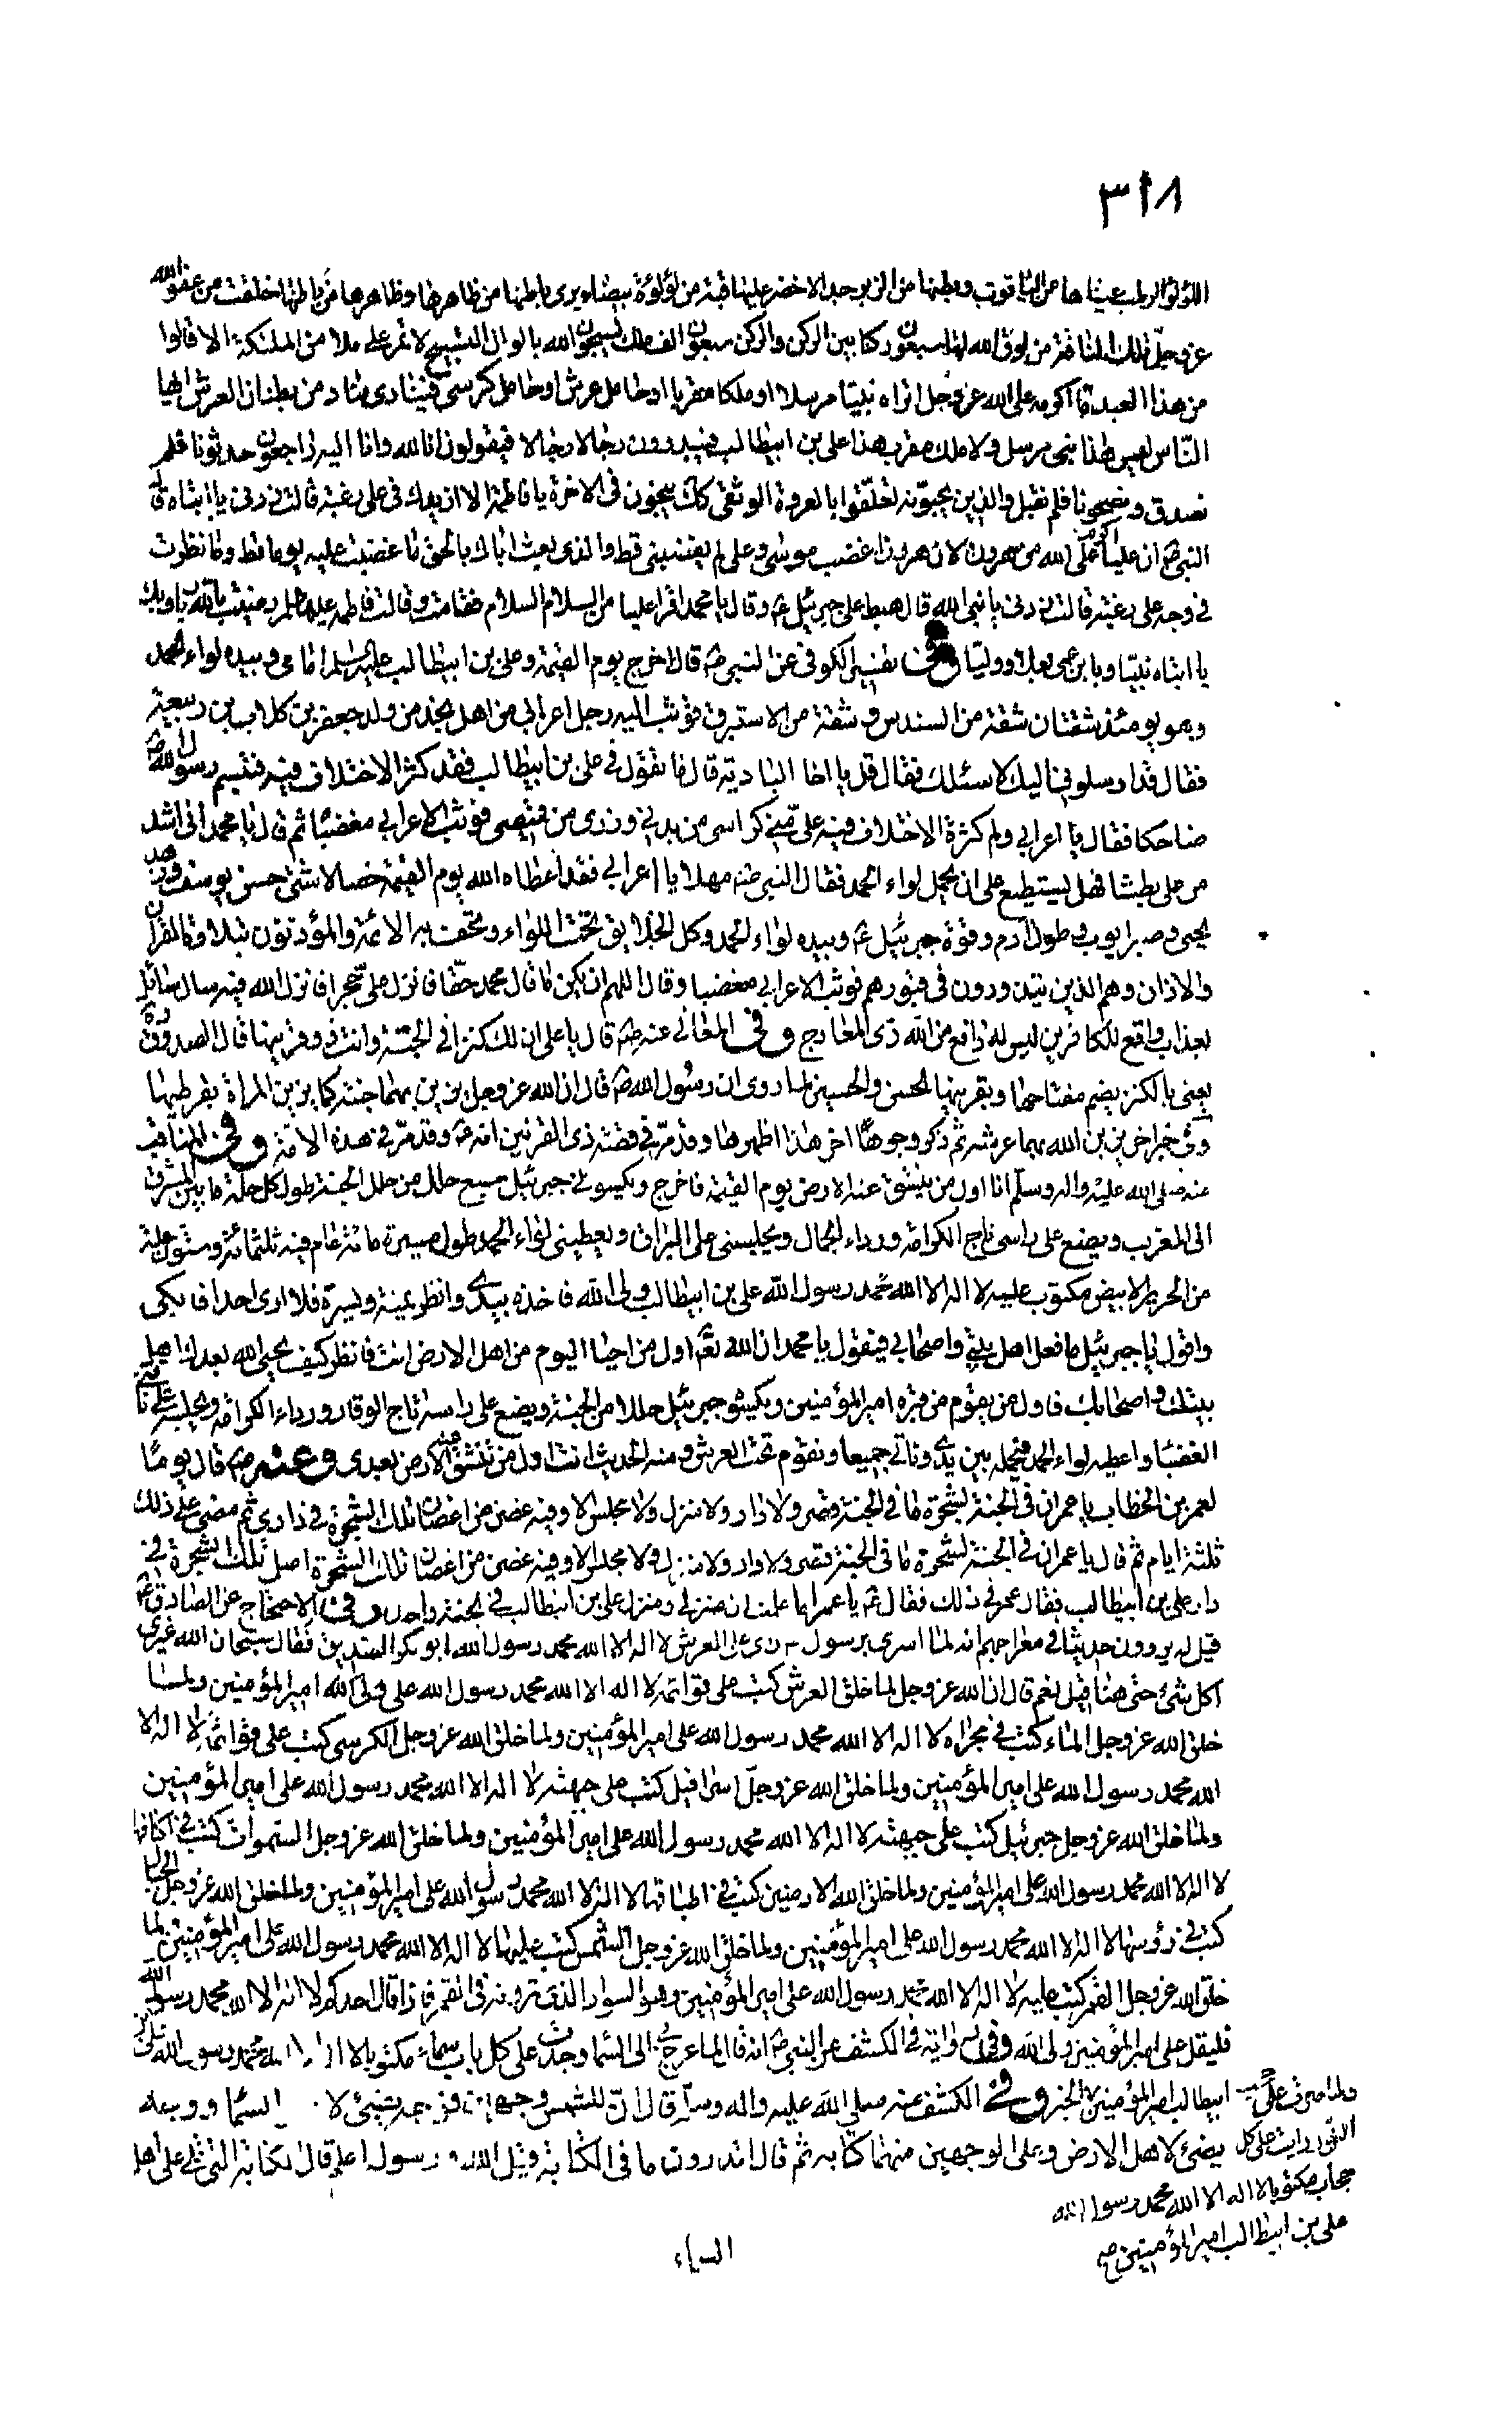 ٣١٨
اللؤلؤ الرطب عيناها من الياقوت وبطنها من الزبرجد الاخضر عليها قبة من لؤلؤة بيضاء يرى باطنها من ظاهرها وظاهرها من باطنها خلقت من عفو الله
عز وجل تلك الناقة من نوق الله لها سبعون ركنا بين الركن والركن سبعون الف ملك يسبحون الله بالوان التسبيح لا تمر على ملاء من الملئكة الا قالوا
من هذا العبد ما اكرمه على الله عز وجل اتراه نبيا مرسلا او ملكا مقربا او حامل عرش او حامل كرسي فينادي مناد من بطنان العرش ايها
الناس ليس هذا نبي مرسل ولا ملك مقرب هذا علي بن ابيطالب فيبدرون رجالا رجالا فيقولون انا لله وانا اليه راجعون حدثونا فلم
نصدق ونصحونا فلم نقبل والذين يحبونه تعلقوا بالعروة الوثقى كذلك ينجون في الاخرة يا فاطمة الا ازيدك في علي رغبة قالت زدني يا ابتاه قال
النبي ص ان عليا اكرم على الله من هرون لان هرون اغضب موسى وعلي لم يغضبني قط والذي بعث اباك بالحق ما غضبت عليه يوما قط وما نظرت
في وجه علي رغبة قالت زدني يا نبي الله قال هبط على جبرئيل ع وقال يا محمد اقرا عليا من السلام السلام فقامت وقالت فاطمة عليها السلام رضيت بالله ربا وبك
يا ابتاه نبيا وبابن عمي بعلا ووليا وفي تفسير الكوفي عن النبي ص قال اخرج يوم القيمة وعلي بن ابيطالب عليه السلام امامي وبيده لواء الحمد
وهو يومئذ شقتان شقة من السندس وشقة من الاستبرق فوثب اليه رجل اعرابي من اهل نجد من ولد جعفر بن كلاب بن ربيعة
فقال قد ارسلوني اليك لاسئلك فقال قل يا اخا البادية قال ما تقول في علي بن ابيطالب فقد كثر الاختلاف فيه فتبسم رسول الله ص
ضاحكا فقال يا اعرابي ولم كثرة الاختلاف فيه علي مني كراسي من بدني وزري من قميصي فوثب الاعرابي مغضبا ثم قال يا محمد اني اشد
من علي بطشا فهل يستطيع علي ان يحمل لواء الحمد فقال النبي ص مهلا يا اعرابي فقد اعطاه الله يوم القيمة خصالا شتى حسن يوسف وزهد
يحيى وصبر ايوب وطول آدم وقوة جبرئيل ع وبيده لواء الحمد وكل الخلايق تحت اللواء وتحف به الائمة والمؤذنون بتلاوة القرآن
والاذان وهم الذين يتبددون في قبورهم فوثب الاعرابي مغضبا وقال اللهم ان يكن ما قال محمد حقا فانزل علي حجرا فانزل الله فيه سال سائل
بعذاب واقع للكافرين ليس له دافع من الله ذي المعارج وفي المعاني عنه ص قال يا علي ان لك كنزا في الجنة وانت ذو قرنيها قال الصدوق ره
يعني بالكنز مفتاحها وبقرنيها الحسن والحسين لما روي ان رسول الله ص قال ان الله عز وجل يزين بهما جنته كما يزين المراة بقرطيها
وفي خبر اخر يزين الله بهما عرشه ثم ذكر وجوها اخر هذا اظهرها وقد مر في قصة ذي القرنين انه ع وقد مر في هذه الامة وفي المناقب
عنه صلى الله عليه واله وسلم انا اول من ينشق عنه الارض يوم القيمة فاخرج ويكسوني جبرئيل سبع حلل من حلل الجنة طول كل حلة ما بين المشرق
الى المغرب ويضع على راسي تاج الكرامة ورداء الجمال ويجلسني على البراق ويعطيني لواء الحمد طول مسيرة مائة عام فيه ثلثمائة وستون حلة
من الحرير الابيض مكتوب عليه لا اله الا الله محمد رسول الله علي بن ابيطالب ولي الله فاخذه بيدي وانظر يمينة ويسرة فلا ارى احدا فابكي
واقول يا جبرئيل ما فعل اهل بيتي واصحابي فيقول يا محمد ان الله تعالى اول من احيا اليوم من اهل الارض انت فانظر كيف يحيي الله بعدك اهل
بيتك واصحابك فاول من يقوم من قبره امير المؤمنين ويكسوه جبرئيل حللا من الجنة ويضع على راسه تاج الوقار ورداء الكرامة ويجلسه على ناقتي
العضباء واعطيه لواء الحمد فيحمله بين يدي وناتي جميعا ونقوم تحت العرش ومنه الحديث انت اول من تنشق عنه الارض بعدي وعنه ص قال يوما
لعمر بن الخطاب يا عمر ان في الجنة لشجرة ما في الجنة قصر ولا دار ولا منزل ولا مجلس الا وفيه غصن من اغصان تلك الشجرة في داري ثم مضى على ذلك
ثلثة ايام ثم قال يا عمر ان في الجنة لشجرة ما في الجنة قصر ولا دار ولا منزل ولا مجلس الا وفيه غصن من اغصان تلك الشجرة اصل تلك الشجرة في
دار علي بن ابيطالب فقال عمر في ذلك فقال ع يا عمر اما علمت ان منزلي ومنزل علي بن ابيطالب في الجنة واحد وفي الاحتجاج عن الصادق ع
قيل له يروون حديثا في معراجهم انه لما اسري برسول راى على العرش لا اله الا الله محمد رسول الله ابو بكر الصديق فقال سبحان الله غيروا
كل شئ حتى هذا قيل نعم قال ان الله عز وجل لما خلق العرش كتب على قوائمه لا اله الا الله محمد رسول الله علي ولي الله امير المؤمنين ولما
خلق الله عز وجل الماء كتب في مجراه لا اله الا الله محمد رسول الله علي امير المؤمنين ولما خلق الله عز وجل الكرسي كتب على قوائمه لا اله الا
الله محمد رسول الله علي امير المؤمنين ولما خلق الله عز وجل اسرافيل كتب على جبهته لا اله الا الله محمد رسول الله علي امير المؤمنين
ولما خلق الله عز وجل جبرئيل كتب على جبهته لا اله الا الله محمد رسول الله علي امير المؤمنين ولما خلق الله عز وجل السموات كتب في اكنافها
لا اله الا الله محمد رسول الله علي امير المؤمنين ولما خلق الله الارضين كتب في اطباقها لا اله الا الله محمد رسول الله علي امير المؤمنين ولما خلق الله عز وجل الجبال
كتب في رؤسها لا اله الا الله محمد رسول الله علي امير المؤمنين ولما خلق الله عز وجل الشمس كتب عليها لا اله الا الله محمد رسول الله علي امير المؤمنين ولما
خلق الله عز وجل القمر كتب عليه لا اله الا الله محمد رسول الله علي امير المؤمنين وهو السواد الذي ترونه في القمر فاذا قال احدكم لا اله الا الله محمد رسول الله
فليقل علي امير المؤمنين ولي الله وفي رواية في الكشف عن النبي ص انه قال لما عرج بي الى السماء وجدت على كل باب سماء مكتوبا لا اله الا الله محمد رسول الله علي بن
ابيطالب امير المؤمنين الخبر وفي الكشف عنه صلى الله عليه واله وسلم قال ان للشمس وجهين فوجه يضئ لا السماء ووجه
يضئ لاهل الارض وعلى الوجهين منهما كتابه ثم قال اتدرون ما في الكتابة قيل الله ورسوله اعلم قال الكتابة التي تلي على اهل
ولما صرف على حجب
النور رايت على كل
حجاب مكتوبا لا اله الا الله محمد رسول الله
علي بن ابيطالب امير المؤمنين صح
السماء